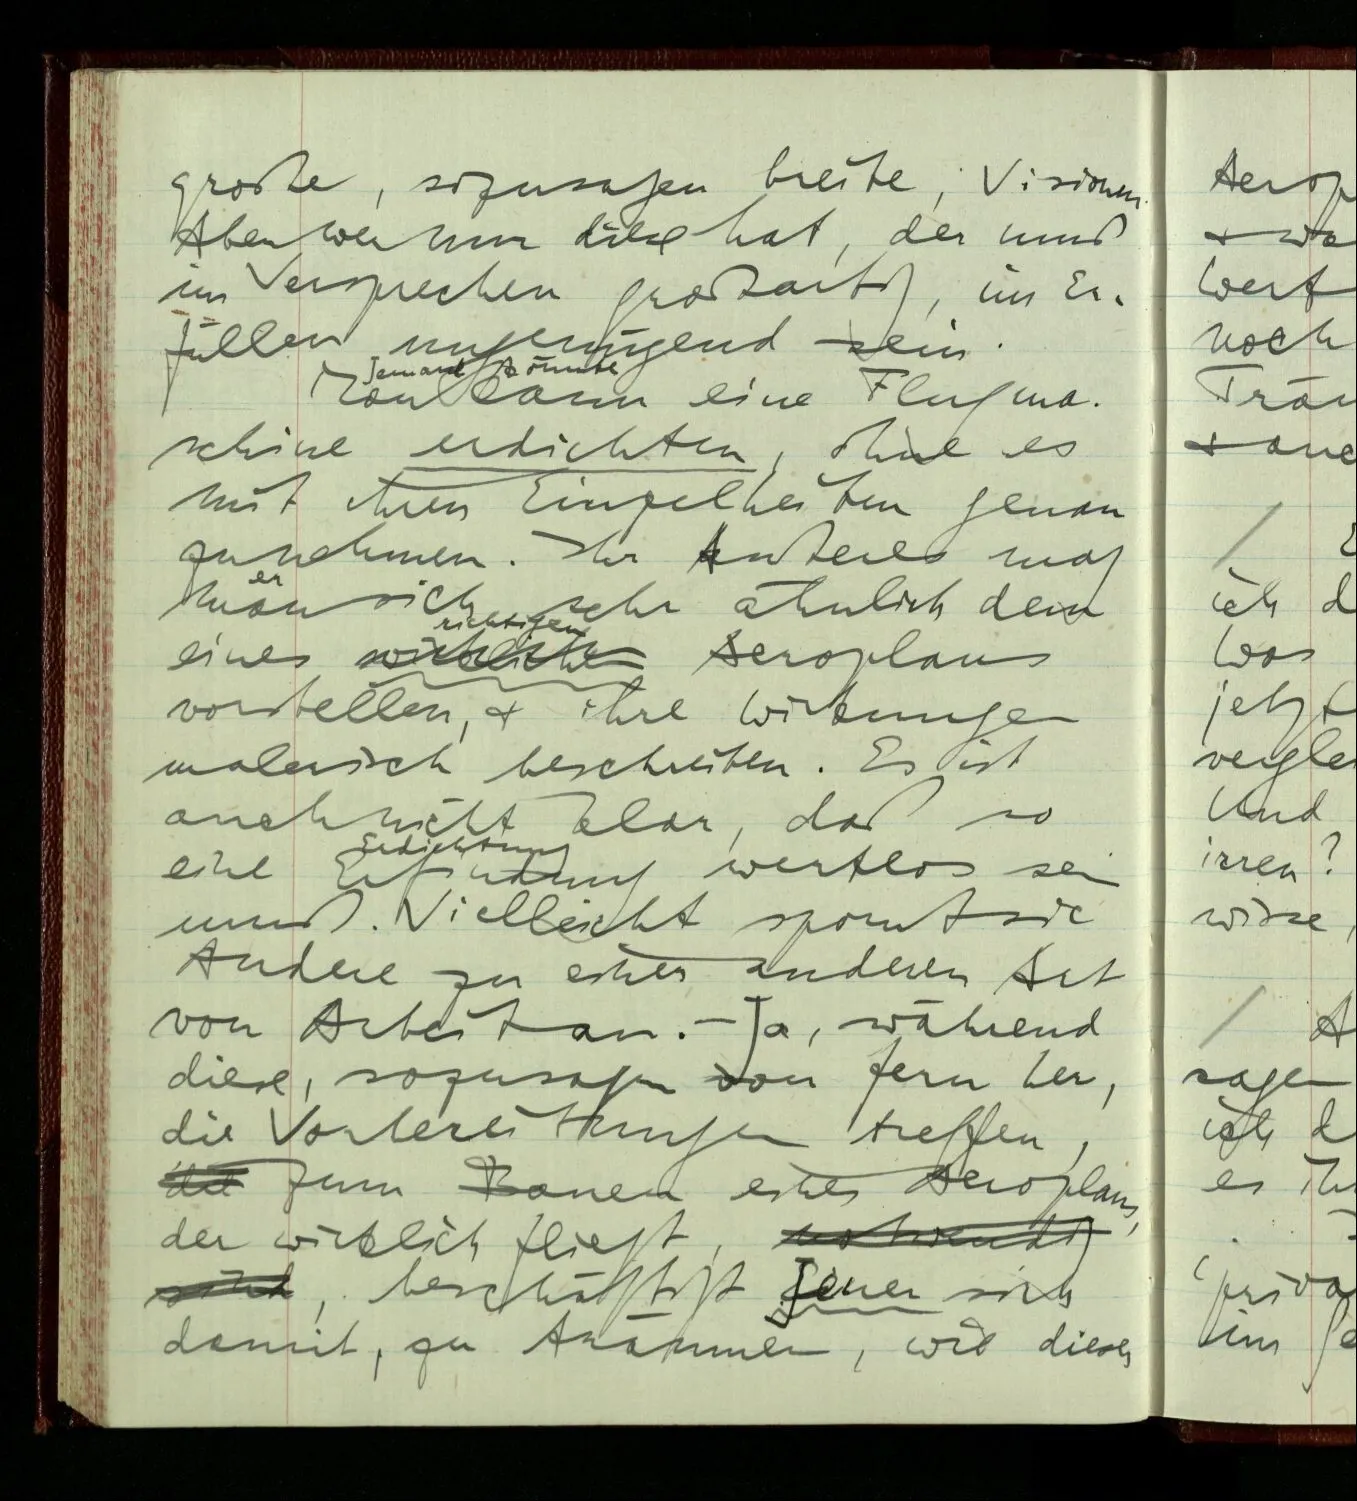 große, sozusagen breite, Visionen
Aber wer nur diese hat, der muß
im Versprechen großartig, im Er-
füllen ungenügend sein.
Jemand könnte
Man kann eine Flugma-
schine erdichten, ohne es
mit ihren Einzelheiten genau
zu nehmen. Ihr Äußeres mag
er
man sich sehr ähnlich dem
richtigen
eines wirklichen Aeroplans
vorstellen, & ihre Wirkungen
malerisch beschreiben. Es ist
auch nicht klar, daß so
Erdichtung
eine Erfindung wertlos sein
muß. Vielleicht spornt sie
Andere zu einer anderen Art
von Arbeit an. – Ja, während
diese, sozusagen von fern her,
die Vorbereitungen treffen,
die zum Bauen eines Aeroplans,
der wirklich fliegt, notwendig
sind, beschäftigt Jener sich
damit, zu träumen, wie dieses
Aerop
& wa
wert
noch
Träu
& auc
/
ich d
was
jetzt
vergle
Und
irren?
wisse,
/ A
sagen
ich d
es ih
'priva
im Ge